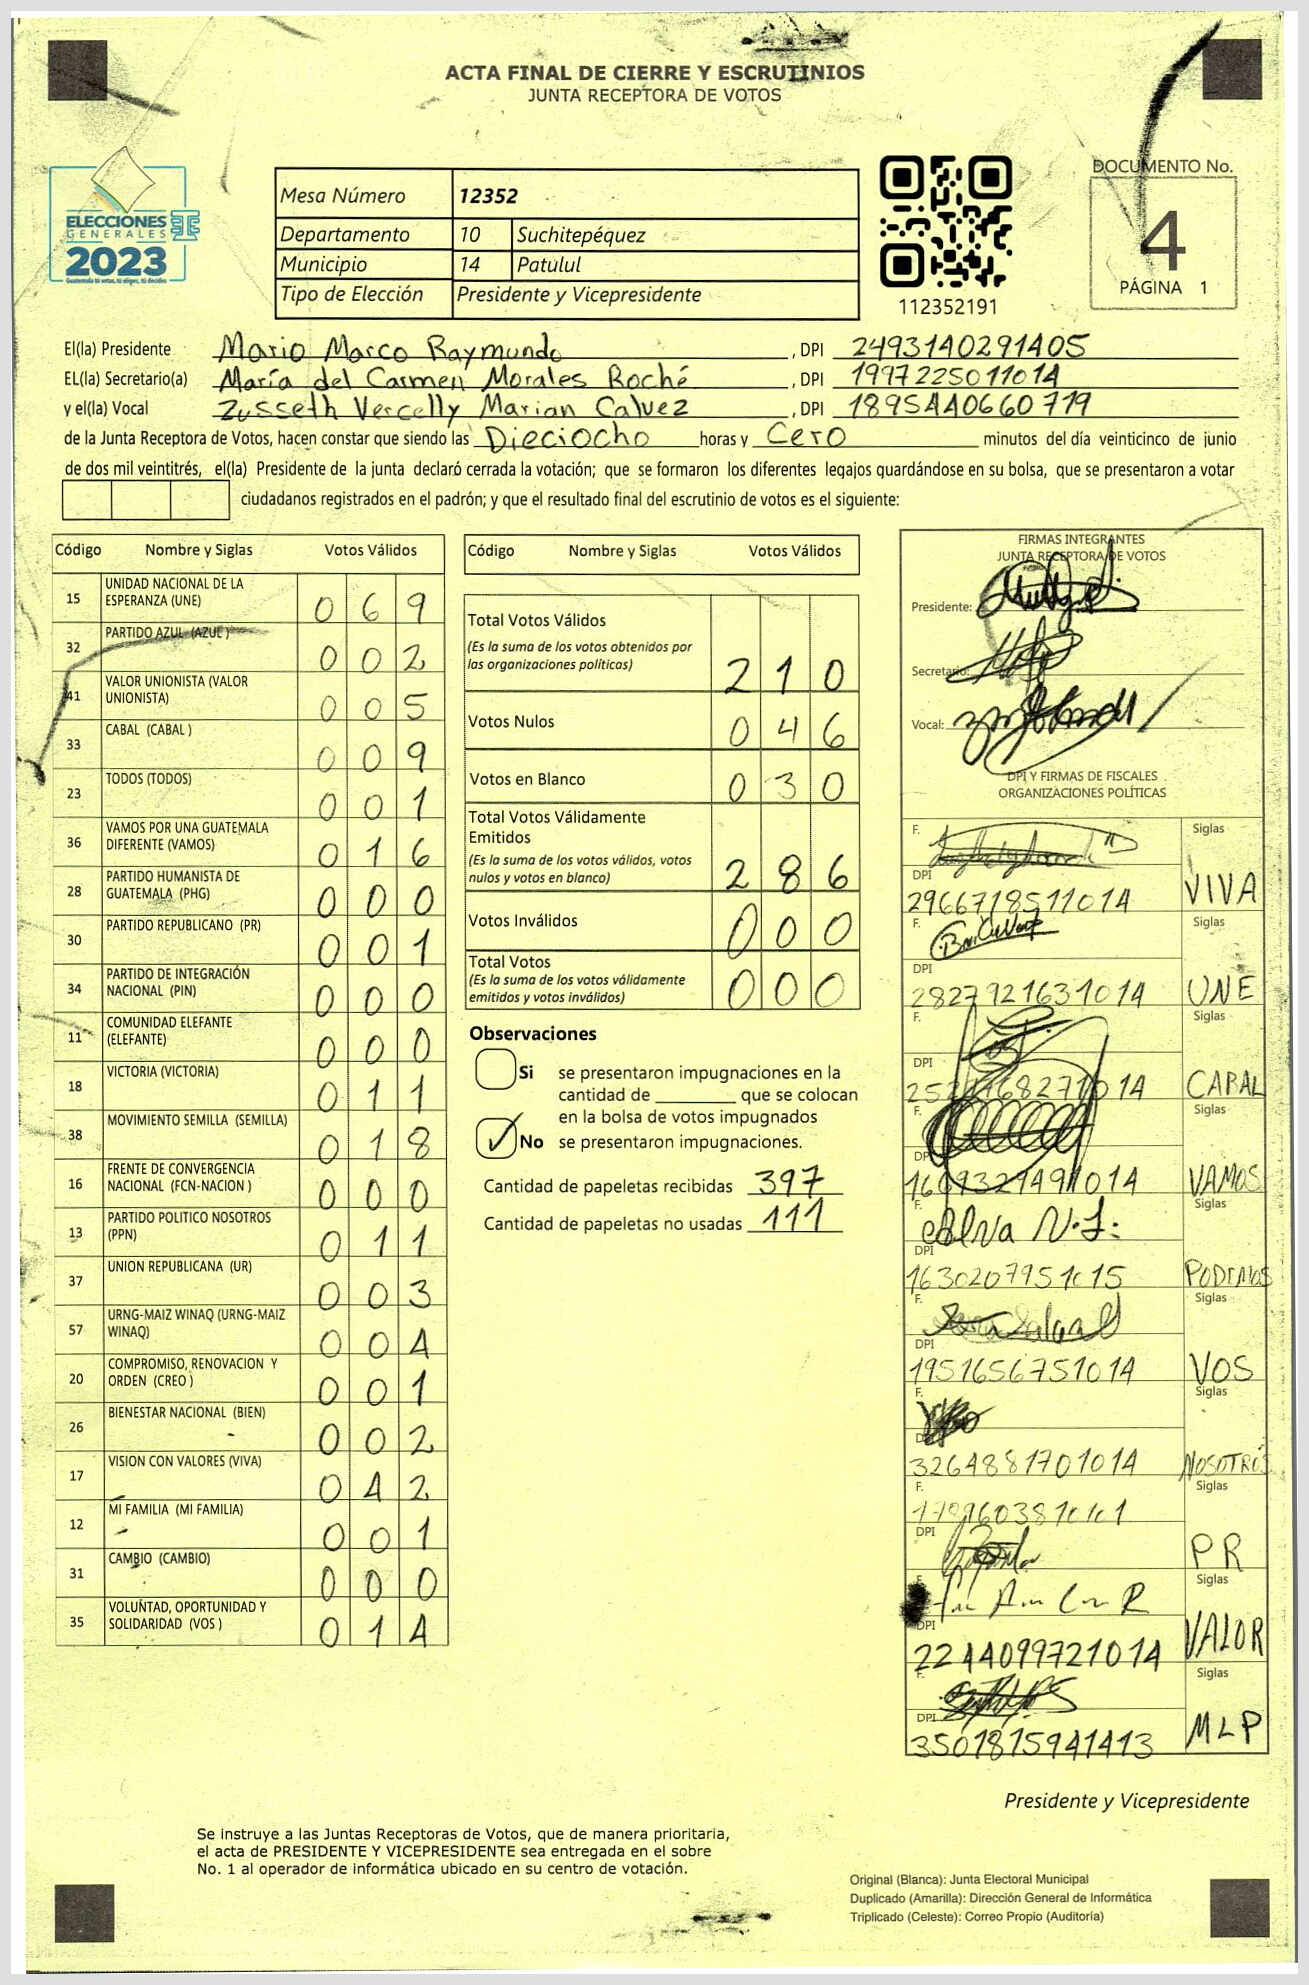 ACTA FINAL DE CIERRE Y ESCRUTINIOS
JUNTA RECEPTORA DE VOTOS
ELECCIONES
GENERALES
2023
Mesa Número 12352
Departamento 10 Suchitepéquez
Municipio 14 Patulul
Tipo de Elección Presidente y Vicepresidente
112352191
DOCUMENTO No.
4
PÁGINA 1
El(la) Presidente Mario Marco Raymundo , DPI 2493140291405
EL(la) Secretario(a) María del Carmen Morales Roché , DPI 1997225011014
y el(la) Vocal Zusseth Vercelly Marian Calvez , DPI 1895440660719
de la Junta Receptora de Votos, hacen constar que siendo las Dieciocho horas y Cero minutos del día veinticinco de junio
de dos mil veintitrés, el(la) Presidente de la junta declaró cerrada la votación; que se formaron los diferentes legajos guardándose en su bolsa, que se presentaron a votar
ciudadanos registrados en el padrón; y que el resultado final del escrutinio de votos es el siguiente:
Código Nombre y Siglas Votos Válidos
15 UNIDAD NACIONAL DE LA ESPERANZA (UNE) 0 6 9
32 PARTIDO AZUL (AZUL ) 0 0 2
41 VALOR UNIONISTA (VALOR UNIONISTA) 0 0 5
33 CABAL (CABAL ) 0 0 9
23 TODOS (TODOS) 0 0 1
36 VAMOS POR UNA GUATEMALA DIFERENTE (VAMOS) 0 1 6
28 PARTIDO HUMANISTA DE GUATEMALA (PHG) 0 0 0
30 PARTIDO REPUBLICANO (PR) 0 0 1
34 PARTIDO DE INTEGRACIÓN NACIONAL (PIN) 0 0 0
11 COMUNIDAD ELEFANTE (ELEFANTE) 0 0 0
18 VICTORIA (VICTORIA) 0 1 1
38 MOVIMIENTO SEMILLA (SEMILLA) 0 1 8
16 FRENTE DE CONVERGENCIA NACIONAL (FCN-NACION ) 0 0 0
13 PARTIDO POLITICO NOSOTROS (PPN) 0 1 1
37 UNION REPUBLICANA (UR) 0 0 3
57 URNG-MAIZ WINAQ (URNG-MAIZ WINAQ) 0 0 4
20 COMPROMISO, RENOVACION Y ORDEN (CREO ) 0 0 1
26 BIENESTAR NACIONAL (BIEN) 0 0 2
17 VISION CON VALORES (VIVA) 0 4 2
12 MI FAMILIA (MI FAMILIA) 0 0 1
31 CAMBIO (CAMBIO) 0 0 0
35 VOLUNTAD, OPORTUNIDAD Y SOLIDARIDAD (VOS ) 0 1 4
Código Nombre y Siglas Votos Válidos
Total Votos Válidos
(Es la suma de los votos obtenidos por
las organizaciones políticas) 2 1 0
Votos Nulos 0 4 6
Votos en Blanco 0 3 0
Total Votos Válidamente
Emitidos
(Es la suma de los votos válidos, votos
nulos y votos en blanco) 2 8 6
Votos Inválidos 0 0 0
Total Votos
(Es la suma de los votos válidamente
emitidos y votos inválidos) 0 0 0
Observaciones
Si se presentaron impugnaciones en la
cantidad de ________ que se colocan
en la bolsa de votos impugnados
No se presentaron impugnaciones.
Cantidad de papeletas recibidas 397
Cantidad de papeletas no usadas 111
FIRMAS INTEGRANTES
JUNTA RECEPTORA DE VOTOS
Presidente:
Secretario:
Vocal:
DPI Y FIRMAS DE FISCALES
ORGANIZACIONES POLÍTICAS
F. Siglas
DPI
2966718511014 VIVA
F. Siglas
DPI
2827921631014 UNE
F. Siglas
DPI
CABAL
F. Siglas
DPI
VAMOS
F. Siglas
DPI
1630207951015 PODEMOS
F. Siglas
DPI
1951656751014 VOS
F. Siglas
DPI
3264881701014 NOSOTROS
F. Siglas
DPI
PR
F. Siglas
DPI
2244099721014 VALOR
F. Siglas
DPI
3501815941413 MLP
Presidente y Vicepresidente
Se instruye a las Juntas Receptoras de Votos, que de manera prioritaria,
el acta de PRESIDENTE Y VICEPRESIDENTE sea entregada en el sobre
No. 1 al operador de informática ubicado en su centro de votación.
Original (Blanca): Junta Electoral Municipal
Duplicado (Amarilla): Dirección General de Informática
Triplicado (Celeste): Correo Propio (Auditoría)